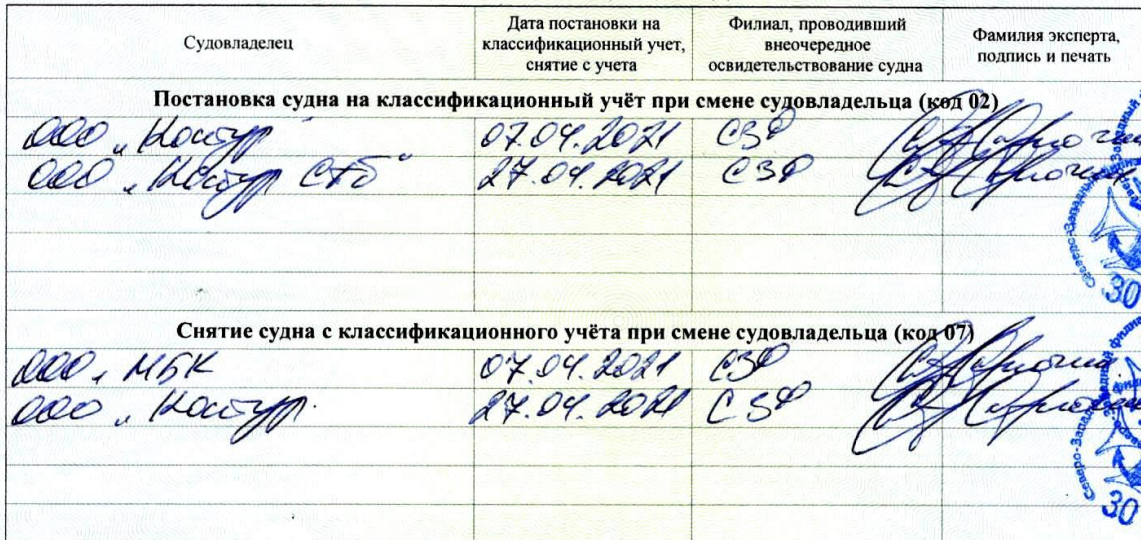 Судовладелец
Дата постановки на
классификационный учет,
снятие с учета
Филиал, проводивший
внеочередное
освидетельствование судна
Фамилия эксперта,
подпись и печать
Постановка судна на классификационный учёт при смене судовладельца (код 02)
ООО „Контур“ 07.04.2021 СЗФ
ООО „Контур СПб“ 27.04.2021 СЗФ
Снятие судна с классификационного учёта при смене судовладельца (код 07)
ООО „МБК 07.04.2021 СЗФ
ООО „Контур. 27.04.2021 СЗФ
Северо-Западный
30
Северо-Западный филиал
30